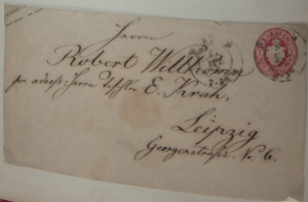 Herrn
Robert Willkomm
pr. adress: Herrn Tischler E. Krah,
Leipzig
Georgenstraße. No. 6.